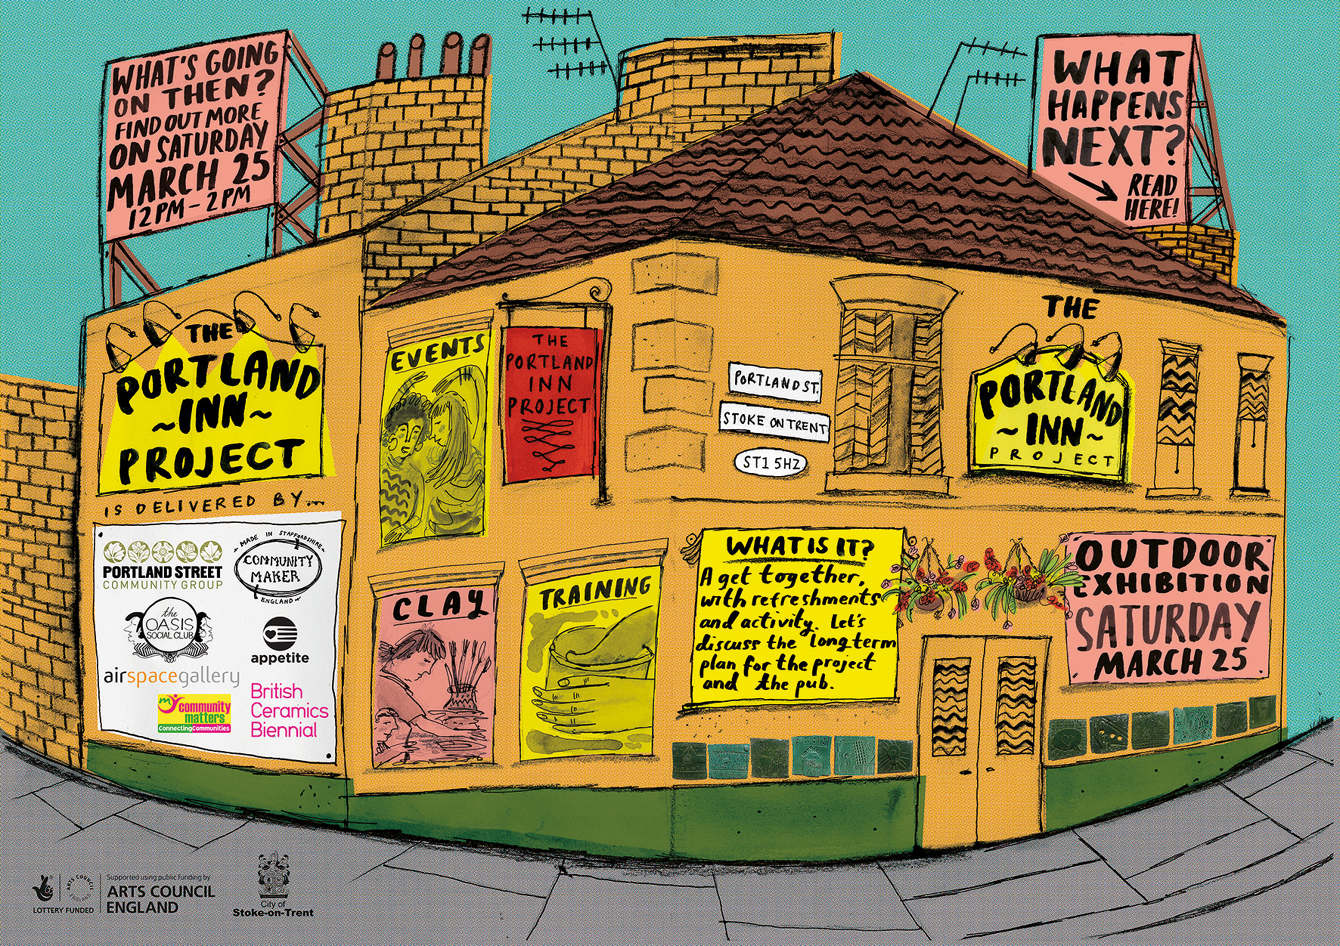 WHAT'S GOING
ON THEN?
FIND OUT MORE
ON SATURDAY
MARCH 25
12PM - 2PM
WHAT
HAPPENS
NEXT?
READ
HERE!
THE
PORTLAND
~INN~
PROJECT
IS DELIVERED BY...
PORTLAND STREET
COMMUNITY GROUP
MADE IN STAFFORDSHIRE
COMMUNITY
MAKER
ENGLAND
the
OASIS
SOCIAL CLUB
appetite
airspacegallery
my community
matters
ConnectingCommunities
British
Ceramics
Biennial
EVENTS
THE
PORTLAND
INN
PROJECT
CLAY
TRAINING
PORTLAND ST.
STOKE ON TRENT
ST1 5HZ
THE
PORTLAND
~INN~
PROJECT
WHAT IS IT?
A get together,
with refreshments
and activity. Let's
discuss the long term
plan for the project
and the pub.
OUTDOOR
EXHIBITION
SATURDAY
MARCH 25
LOTTERY FUNDED
ARTS COUNCIL
ENGLAND
Supported using public funding by
ARTS COUNCIL
ENGLAND
City of
Stoke-on-Trent